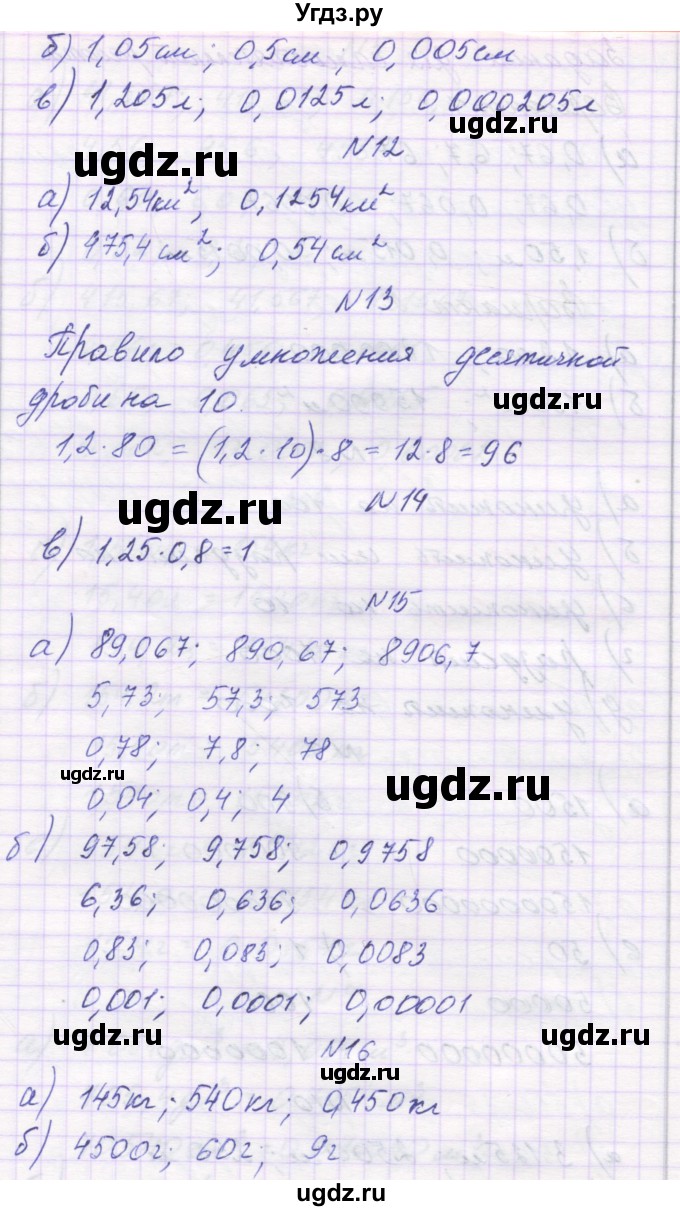 Угдз.ру
б) 1,05см; 0,5см; 0,005см
в) 1,205л; 0,0125л; 0,000205л
ugdz.ru
N12
ugdz.ru
а) 12,54км²; 0,1254км²
б) 475,4см²; 0,54см²
ugdz.ru
ugdz.ru
N13
Правило умножения десятичной
дроби на 10.
ugdz.ru
1,2·80 = (1,2·10)·8 = 12·8 = 96
N14
ugdz.ru
в) 1,25·0,8=1
N15
ugdz.ru
а) 89,067; 890,67; 8906,7
5,73; 57,3; 573
0,78; 7,8; 78
ugdz.ru
ugdz.ru
0,04; 0,4; 4
б) 97,58; 9,758; 0,9758
6,36; 0,636; 0,0636
0,83; 0,083; 0,0083
0,001; 0,0001; 0,00001
ugdz.ru
ugdz.ru
N16
ugdz.ru
а) 145кг; 540кг; 0,450кг
б) 4500г; 60г; 9г
ugdz.ru